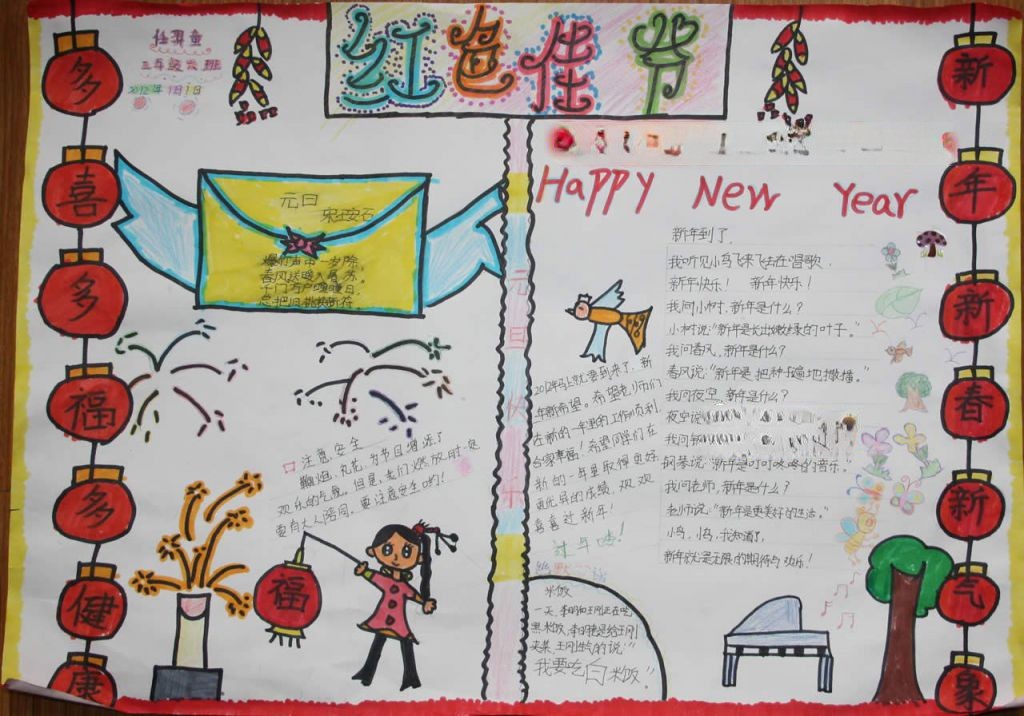 红色佳节
三年级六班
2012年1月1日
多
喜
多
福
多
健
康
元日
宋王安石
爆竹声中一岁除,
春风送暖入屠苏,
千门万户曈曈日,
总把旧桃换新符
注意安全
鞭炮、礼花,为节日增添了
欢乐的气氛。但是,我们燃放时一定
要有大人陪同,更注意安全哟!
福
元旦快乐
Happy New Year
新年到了,
我听见小鸟飞来飞去在唱歌,
新年快乐! 新年快乐!
我问小树,新年是什么?
小树说:“新年是长出嫩绿的叶子。”
我问春风,新年是什么?
春风说:“新年是把种子遍地撒播。”
我问夜空,新年是什么?
夜空说
我问钢
钢琴说:“新年是叮叮咚咚的音乐。”
我问老师,新年是什么?
老师说:“新年是更美好的生活。”
小鸟,小鸟,我知道了,
新年就是无限的期待与欢乐!
2012年马上就要到来了,新
年新希望。希望老师们
在新的一年里的工作顺利
合家幸福!希望同学们在
新的一年里取得更好
更优异的成绩,欢欢
喜喜过新年!
过年喽!
米饭
一天,李明和王刚正在吃
黑米饭,李明老是给王刚
夹菜,王刚生气的说:“
我要吃白米饭”
新
年
新
春
新
气
象